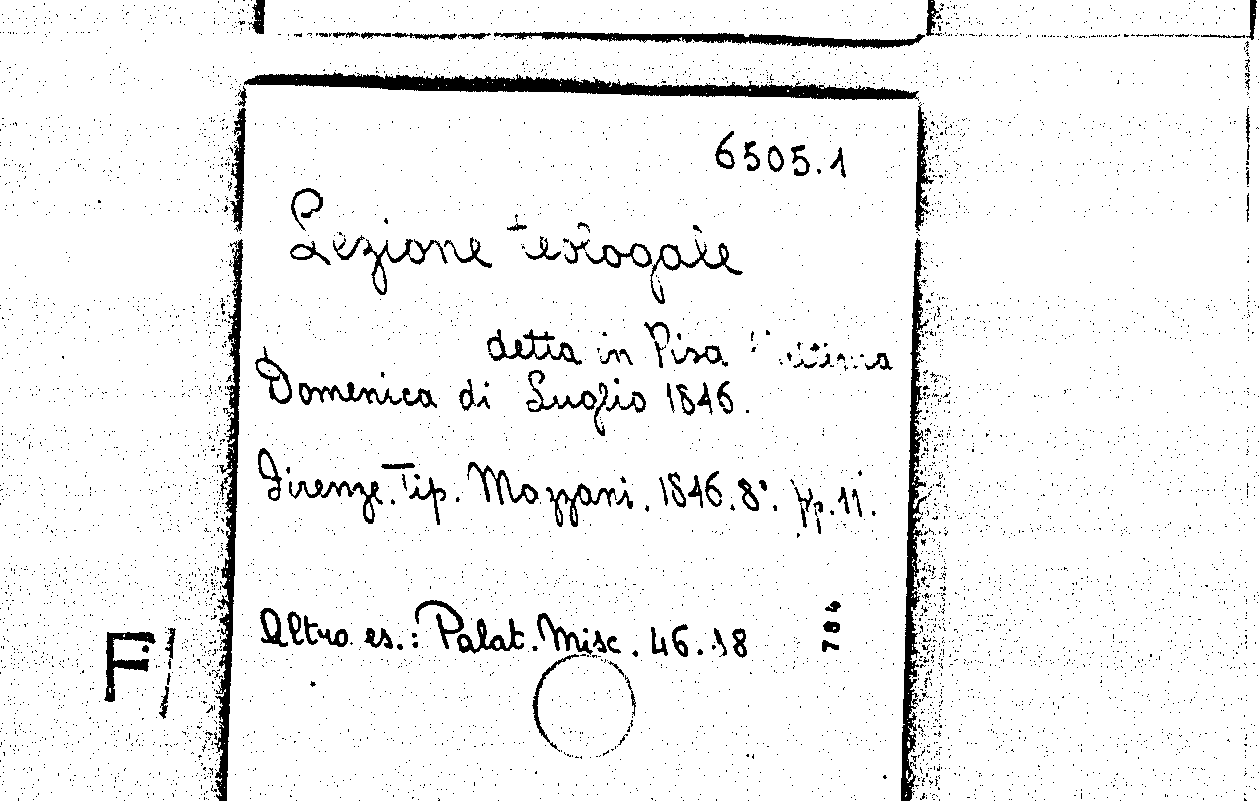 6505.1
Lezione teologale
detta in Pisa
Domenica di Luglio 1846.
Firenze. Tip. Mazzani. 1846. 8°. pp. 11.
Altro es.: Palat. Misc. 46.18
784
F/